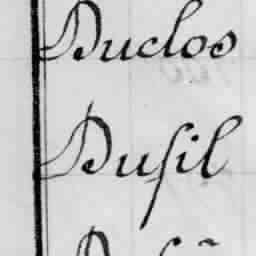 Duclos
Duſil